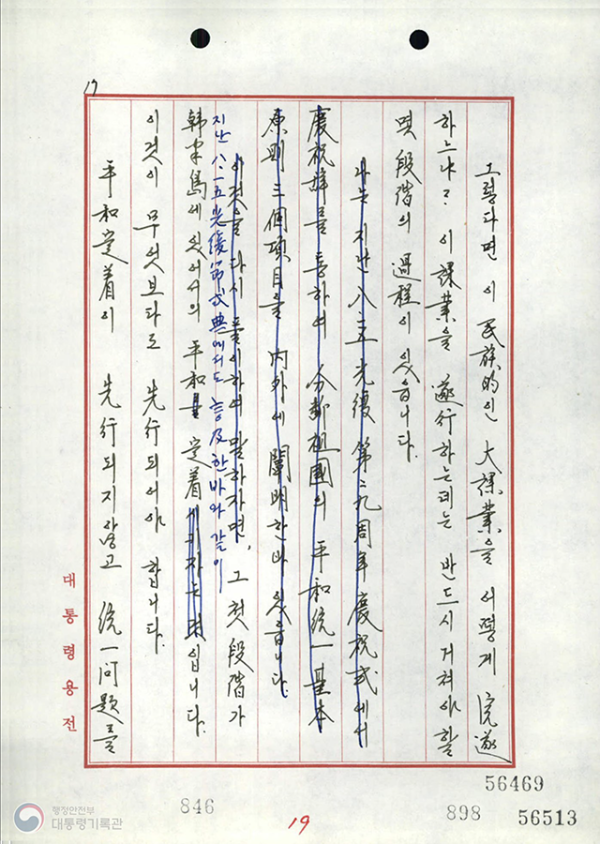 17
그렇다면 이 民族的인 大課業을 어떻게 完遂
하느냐? 이 課業을 遂行하는데는 반드시 거쳐야 할
몇 段階의 過程이 있읍니다.
나는 지난 八.一五 光復 第二九周年 慶祝式에서
慶祝辭를 통하여 分斷祖國의 平和統一 基本
原則 三個項目을 內外에 闡明한바 있읍니다.
이것을 다시 풀이하여 말하자면, 그 첫 段階가
지난 八.一五 光復節式典에서도 言及한바와 같이
韓半島에 있어서의 平和 定着시키자는 것입니다.
이것이 무엇보다도 先行되어야 합니다.
平和定着이 先行되지 않고 統一問題를
대통령용전
56469
846
898
56513
19
행정안전부
대통령기록관